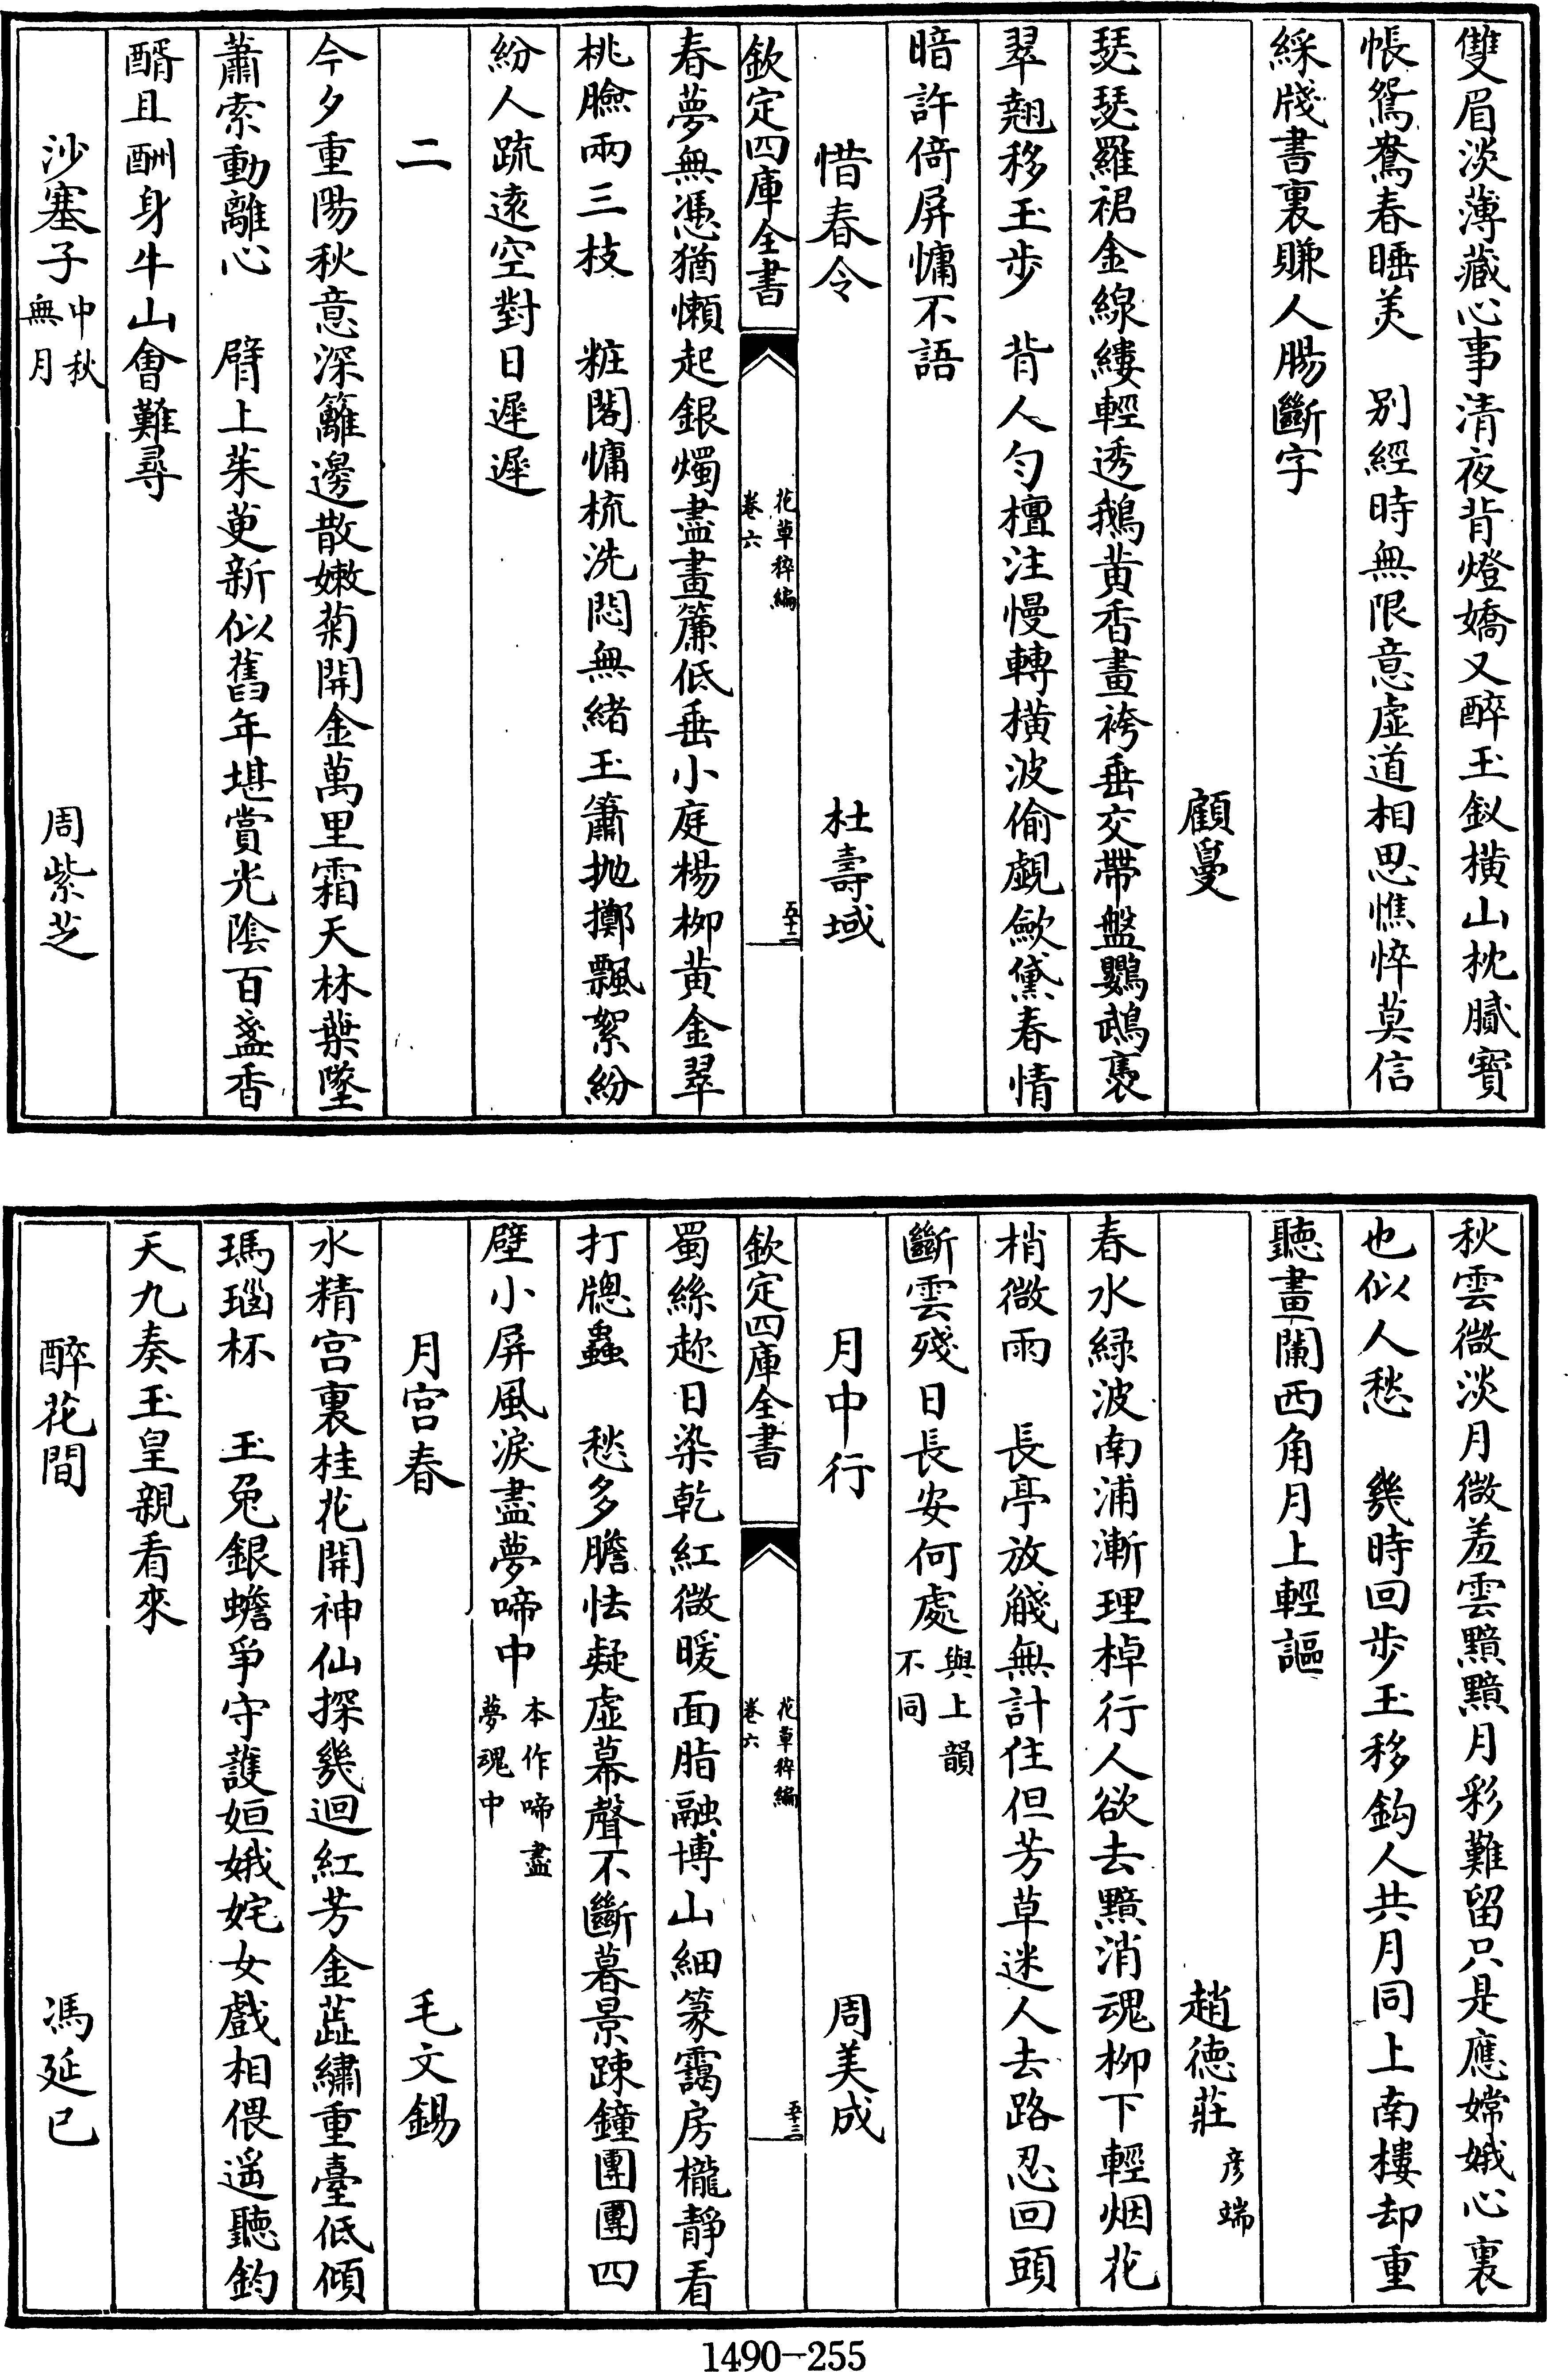 雙眉淡薄藏心事清夜背燈嬌又醉玉釵橫山枕膩寳
帳鴛鴦春睡美　別經時無限意虛道相思憔悴莫信
綵牋書裏賺人腸斷字
顧敻
瑟瑟羅裙金線縷輕透鵝黃香畫袴垂交帶盤鸚鵡裊
翠翹移玉步　背人勻檀注慢轉橫波偷覷歛黛春情
暗許倚屏慵不語
惜春令　杜壽域
欽定四庫全書　花草稡編　卷六　五十二
春夢無憑猶懶起銀燭盡畫簾低垂小庭楊柳黃金翠
桃臉兩三枝　粧閣慵梳洗悶無緒玉簫抛擲飄絮紛
紛人疏遠空對日遲遲
二
今夕重陽秋意深籬邊散嫩菊開金萬里霜天林葉墜
蕭索動離心　臂上茱萸新似舊年堪賞光陰百盞香
醑且酬身牛山會難尋
沙塞子中秋無月　周紫芝
秋雲微淡月微羞雲黯黯月彩難留只是應嫦娥心裏
也似人愁　幾時回步玉移鈎人共月同上南樓却重
聽畫闌西角月上輕謳
趙德莊彥端
春水綠波南浦漸理棹行人欲去黯消魂柳下輕烟花
梢微雨　長亭放醆無計住但芳草迷人去路忍回頭
斷雲殘日長安何處與上韻不同
月中行　周美成
欽定四庫全書　花草稡編　卷六　五十三
蜀絲趂日染乾紅微暖面脂融博山細篆靄房櫳靜看
打牕蟲　愁多膽怯疑虛幕聲不斷暮景踈鐘團團四
壁小屏風淚盡夢啼中本作啼盡夢魂中
月宮春　毛文錫
水精宫裏桂花開神仙探幾迴紅芳金蕋繡重臺低傾
瑪瑙杯　玉兔銀蟾爭守護姮娥姹女戲相偎遥聽鈞
天九奏玉皇親看來
醉花間　馮延已
1490-255